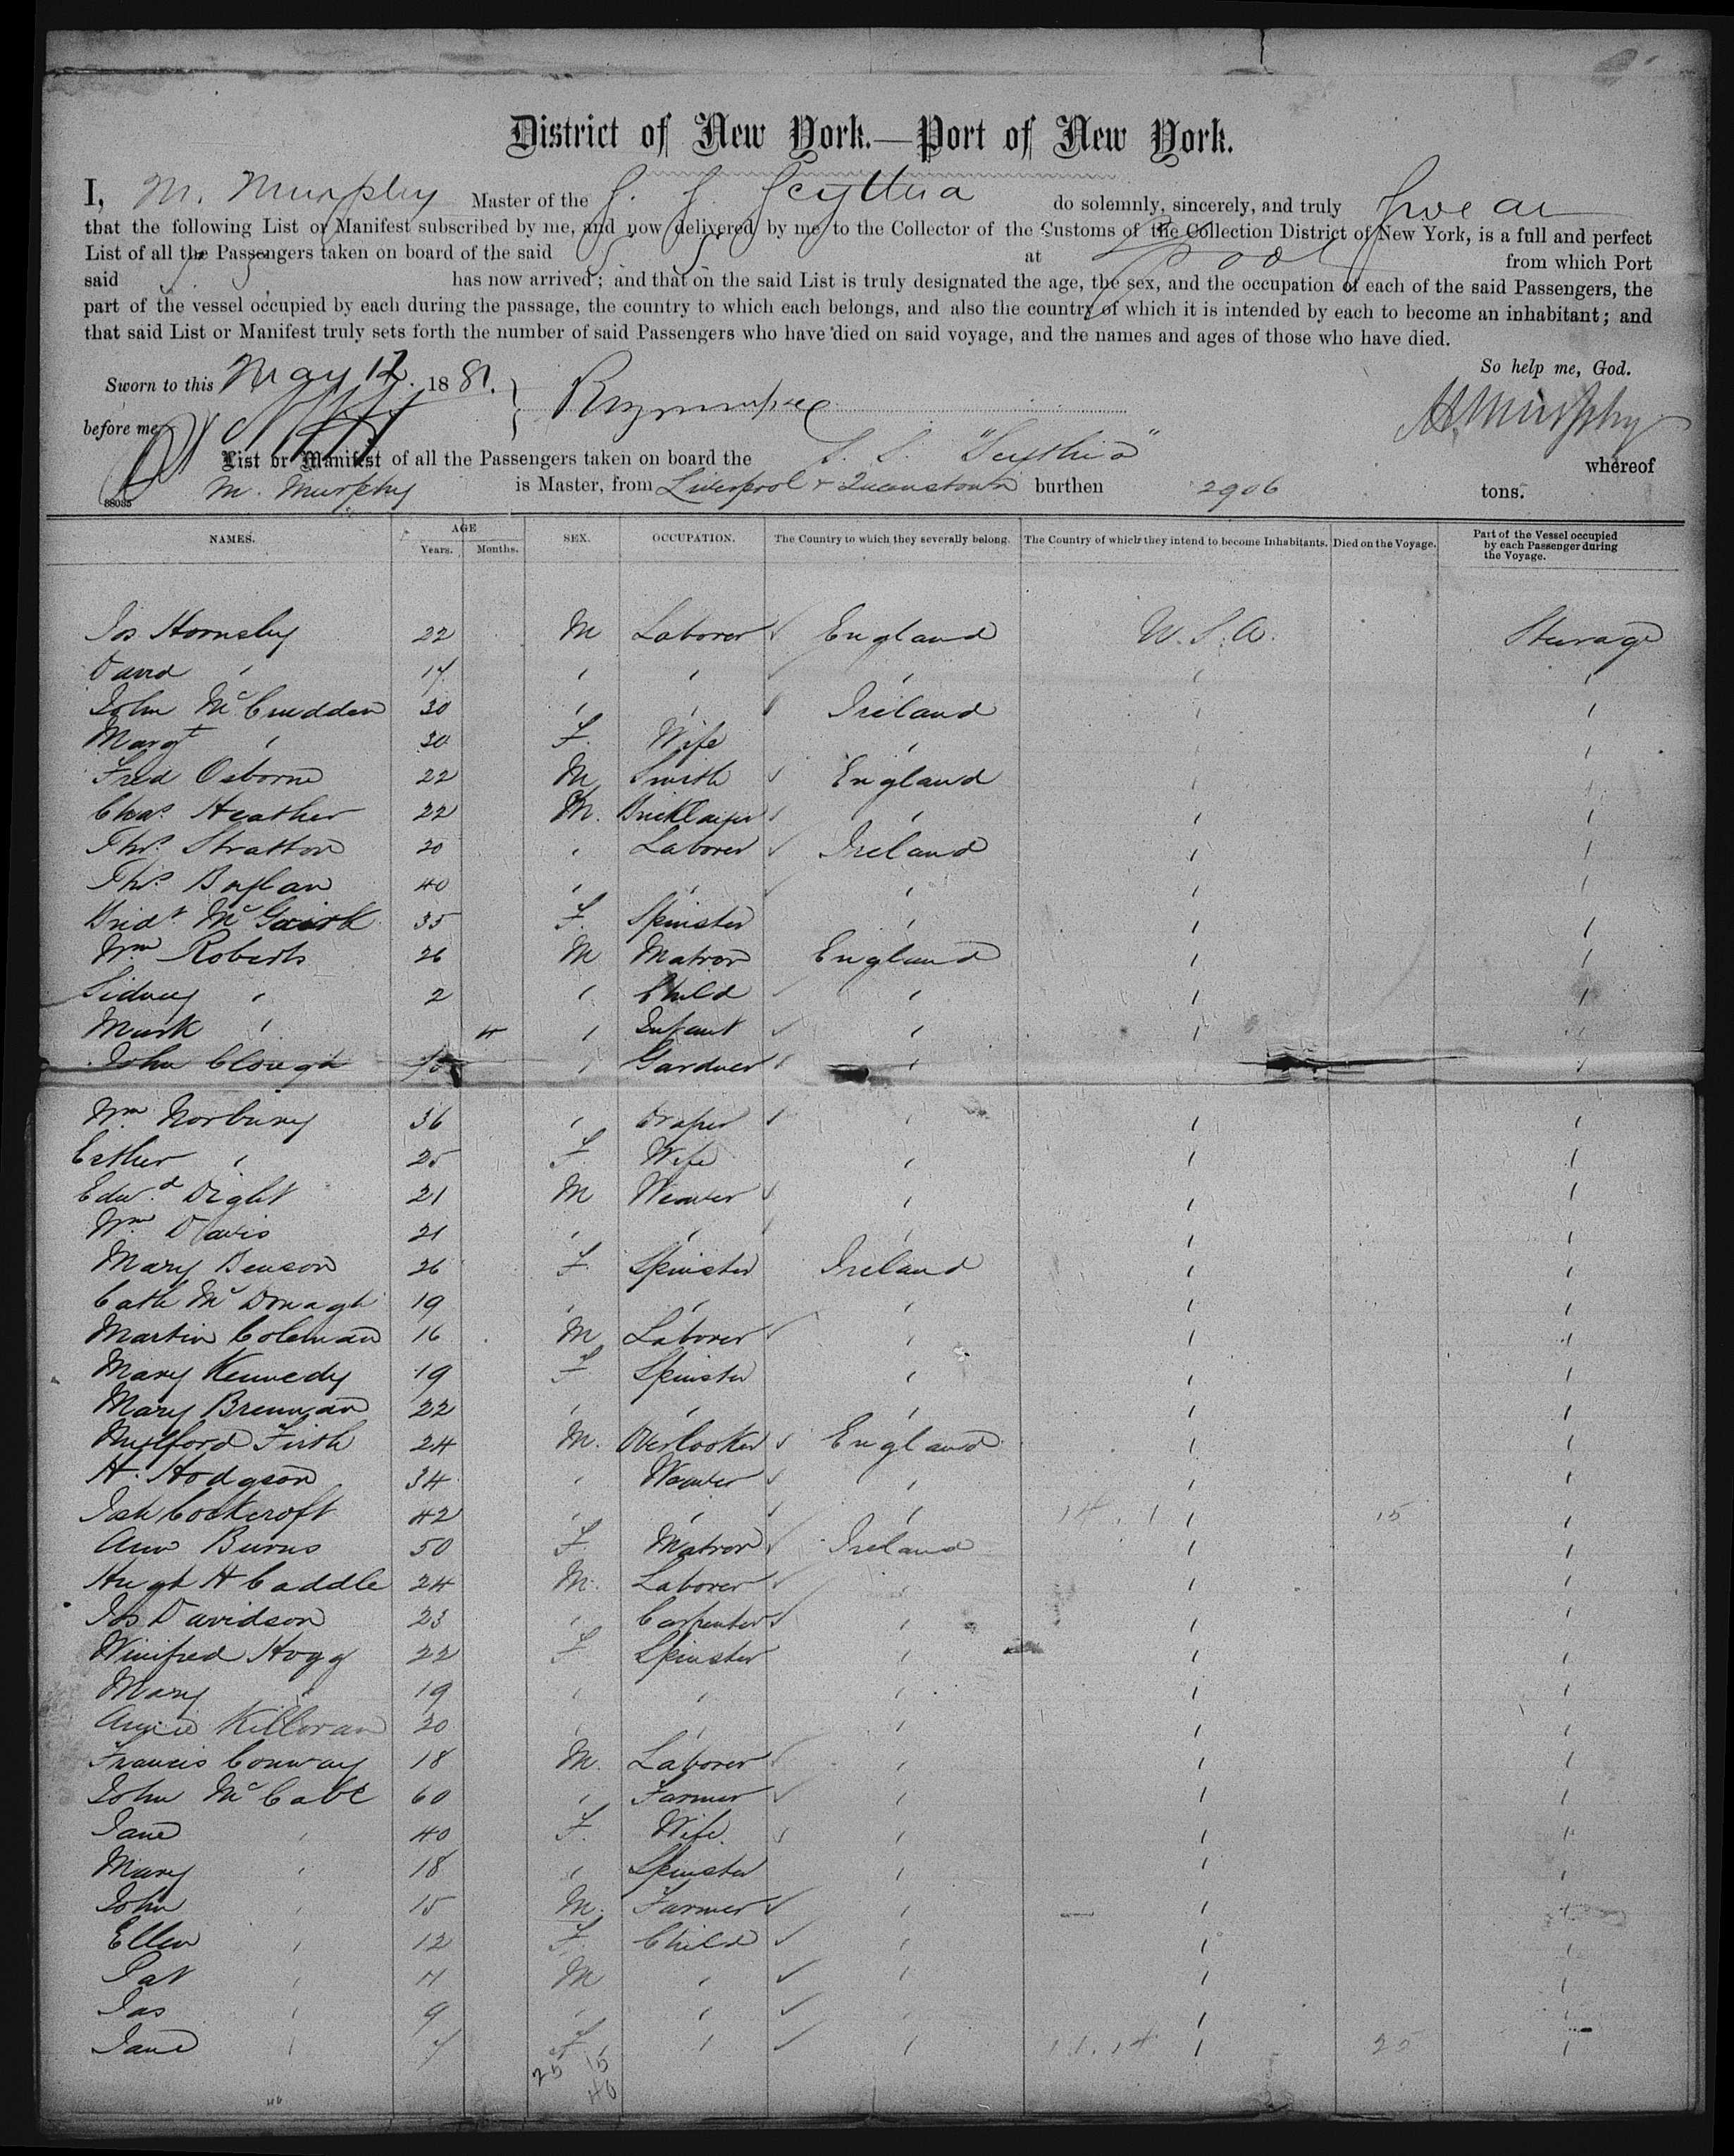 District of New York.—Port of New York.
I, M. Murphy Master of the S. S. Scythia do solemnly, sincerely, and truly swear
that the following List or Manifest subscribed by me, and now delivered by me to the Collector of the Customs of the Collection District of New York, is a full and perfect
List of all the Passengers taken on board of the said S. S. at L'pool from which Port
said S. S. has now arrived; and that on the said List is truly designated the age, the sex, and the occupation of each of the said Passengers, the
part of the vessel occupied by each during the passage, the country to which each belongs, and also the country of which it is intended by each to become an inhabitant; and
that said List or Manifest truly sets forth the number of said Passengers who have died on said voyage, and the names and ages of those who have died.
So help me, God.
Sworn to this May 12. 1881.
before me M Murphy
List or Manifest of all the Passengers taken on board the S. S. "Scythia" whereof
M. Murphy is Master, from Liverpool & Queenstown burthen 2906 tons.
38035
NAMES. AGE Years. Months. SEX. OCCUPATION. The Country to which they severally belong. The Country of which they intend to become Inhabitants. Died on the Voyage. Part of the Vessel occupied by each Passenger during the Voyage.
Jos Hornsby 22 M Laborer England U.S.A. Sturage
David " 17 " " " " "
John McCrudden 30 " " Ireland " "
Margt " 30 F. Wife " "
Fred Osborne 22 M Smith England "
Chas. Heather 22 M. Bricklayer " " "
Thos. Stratton 20 " Laborer Ireland " "
Thos. Boylan 40 " " " " "
Bridt. Mc 35 F. Spinster " " "
Wm Roberts 26 M Matron England " "
Sidney " 2 " Child " " "
Mark " 4 " Infant " " "
John Clough " Gardner " "
Wm Norbury 36 " Draper " " "
Esther " 25 F Wife " " "
Edwd. Dight 21 M Weaver " " "
Wm Davis 21 " " " " "
Mary Benson 26 F. Spinster Ireland " "
Cath McDonagh 19 " " " " "
Martin Coleman 16 M Laborer " " "
Mary Kennedy 19 F Spinster " " "
Mary Brennan 22 " " " " "
Milford Firth 24 M. Overlooker England " "
H. Hodgson 34 " Weaver " " "
Jah Cockcroft 42 " " " 14.1 " 15 "
Ann Burns 50 F. Matron Ireland " "
Hugh H Caddle 24 M. Laborer " " "
Jos Davidson 23 " Carpenter " " "
Winifred Hogg 22 F Spinster " " "
Mary " 19 " " " " "
Annie Killoran 20 " " " " "
Francis Conway 18 M. Laborer " " "
John McCabe 60 " Farmer " " "
Jane " 40 F. Wife. " " "
Mary " 18 " Spinster " " "
John " 15 M. Farmer " " "
Ellen " 12 F. Child " " "
Pat " 11 M " " " "
Jas " 9 " " " " "
Jane " 7 F " " 11.14 " 25 "
25 15
40